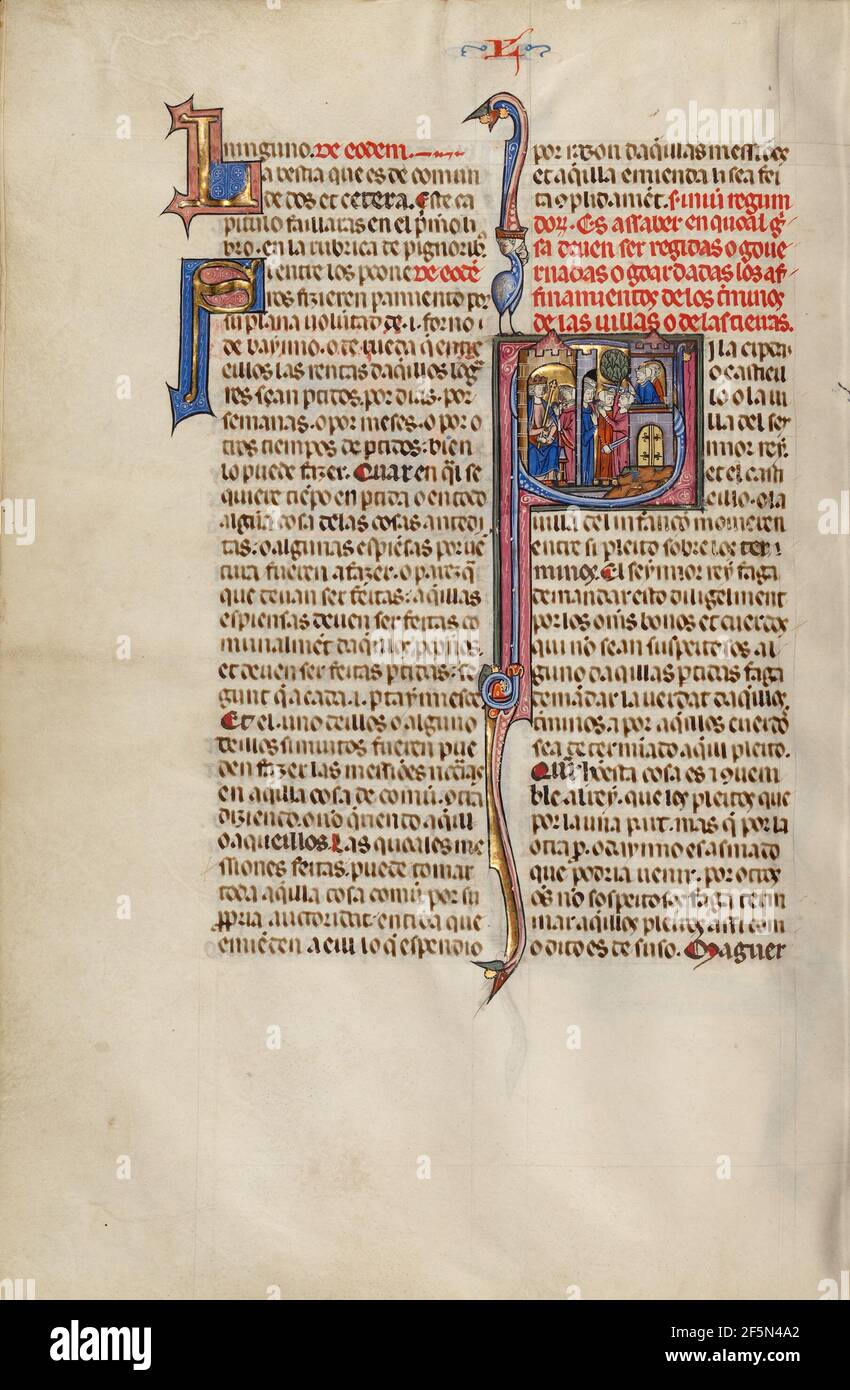 L
ninguno. De eodem.
La bestia que es de comun
de dos et cetera. Este ca
pitulo faillaras en el p'mo li
bro. en la rubrica de pignorib;
Si entre los peone De eodē
ros fizieren pamiento por
su plana uoluntad de .i. forno
de baynno. o de rueda q̄ entre
eillos las rentas daq̄illos loḡ
res sean ptidos. por dias. por
semanas. o por meses. o por o
tros tiempos de ptidos: bien
lo puede fazer. Quar en q̄l se
quiere tiēpo en ptida o en todo
alguna cosa delas cosas antedi
tas: o algunas espiesas por uē
tura fueren a fazer. o parezq̄
que deuan ser feitas: aq̄illas
espiensas deuen ser feitas co
munalmēt
et deuen ser feitas ptidas: se
gunt q̄ a cada .i.
Et el uno deillos o alguno
deillos si muitos fueren pue
den fazer las messiōes
en aq̄illa cosa de comū. otra
diziendo. o nō q̄riendo aq̄ill
o aqueillos. Las quoales me
ssiones feitas. puede tomar
toda aq̄illa cosa comū por su
ppria auctoridat. entroa que
emiēden a eill lo q̄ espendio
por razon daq̄illas messiōes
et aq̄illa emienda li sea fei
ta 9plidamēt. Finiū regun
dorꝝ. Es assaber en quoal g̃
sa deuen ser regidas o goue
rnadas o goardadas los af
finamientos de los t̄minos
de las uillas o de las tierras.
Si la ciper
o castiell
lo o la ui
lla del se
innor rey.
et el casti
eillo. o la
uilla del infançō mouieren
entre si pleito sobre los ter
minos. El seynnor rey faga
demandar esto diligelment
por los om̄s bonos et cuerdos
qui nō sean suspeitosos. al
guno daq̄illas ptidas. faga
demādar la uerdat daq̄illos
t̄minos. a por aq̄illos cuerdos
sea determīado aq̄ill pleito.
Quar esta cosa es 9ueni
ble al rey. que los pleitos que
por la una part. mas q̄ por la
otra p. o daynno es asmado
que podria uenir. por otros
oēs nō sospeitosos faga term
nar aq̄illos pleitos assi com
o dito es de suso. Maguer
alamy
alamy
Image ID: 2F5N4A2
www.alamy.com